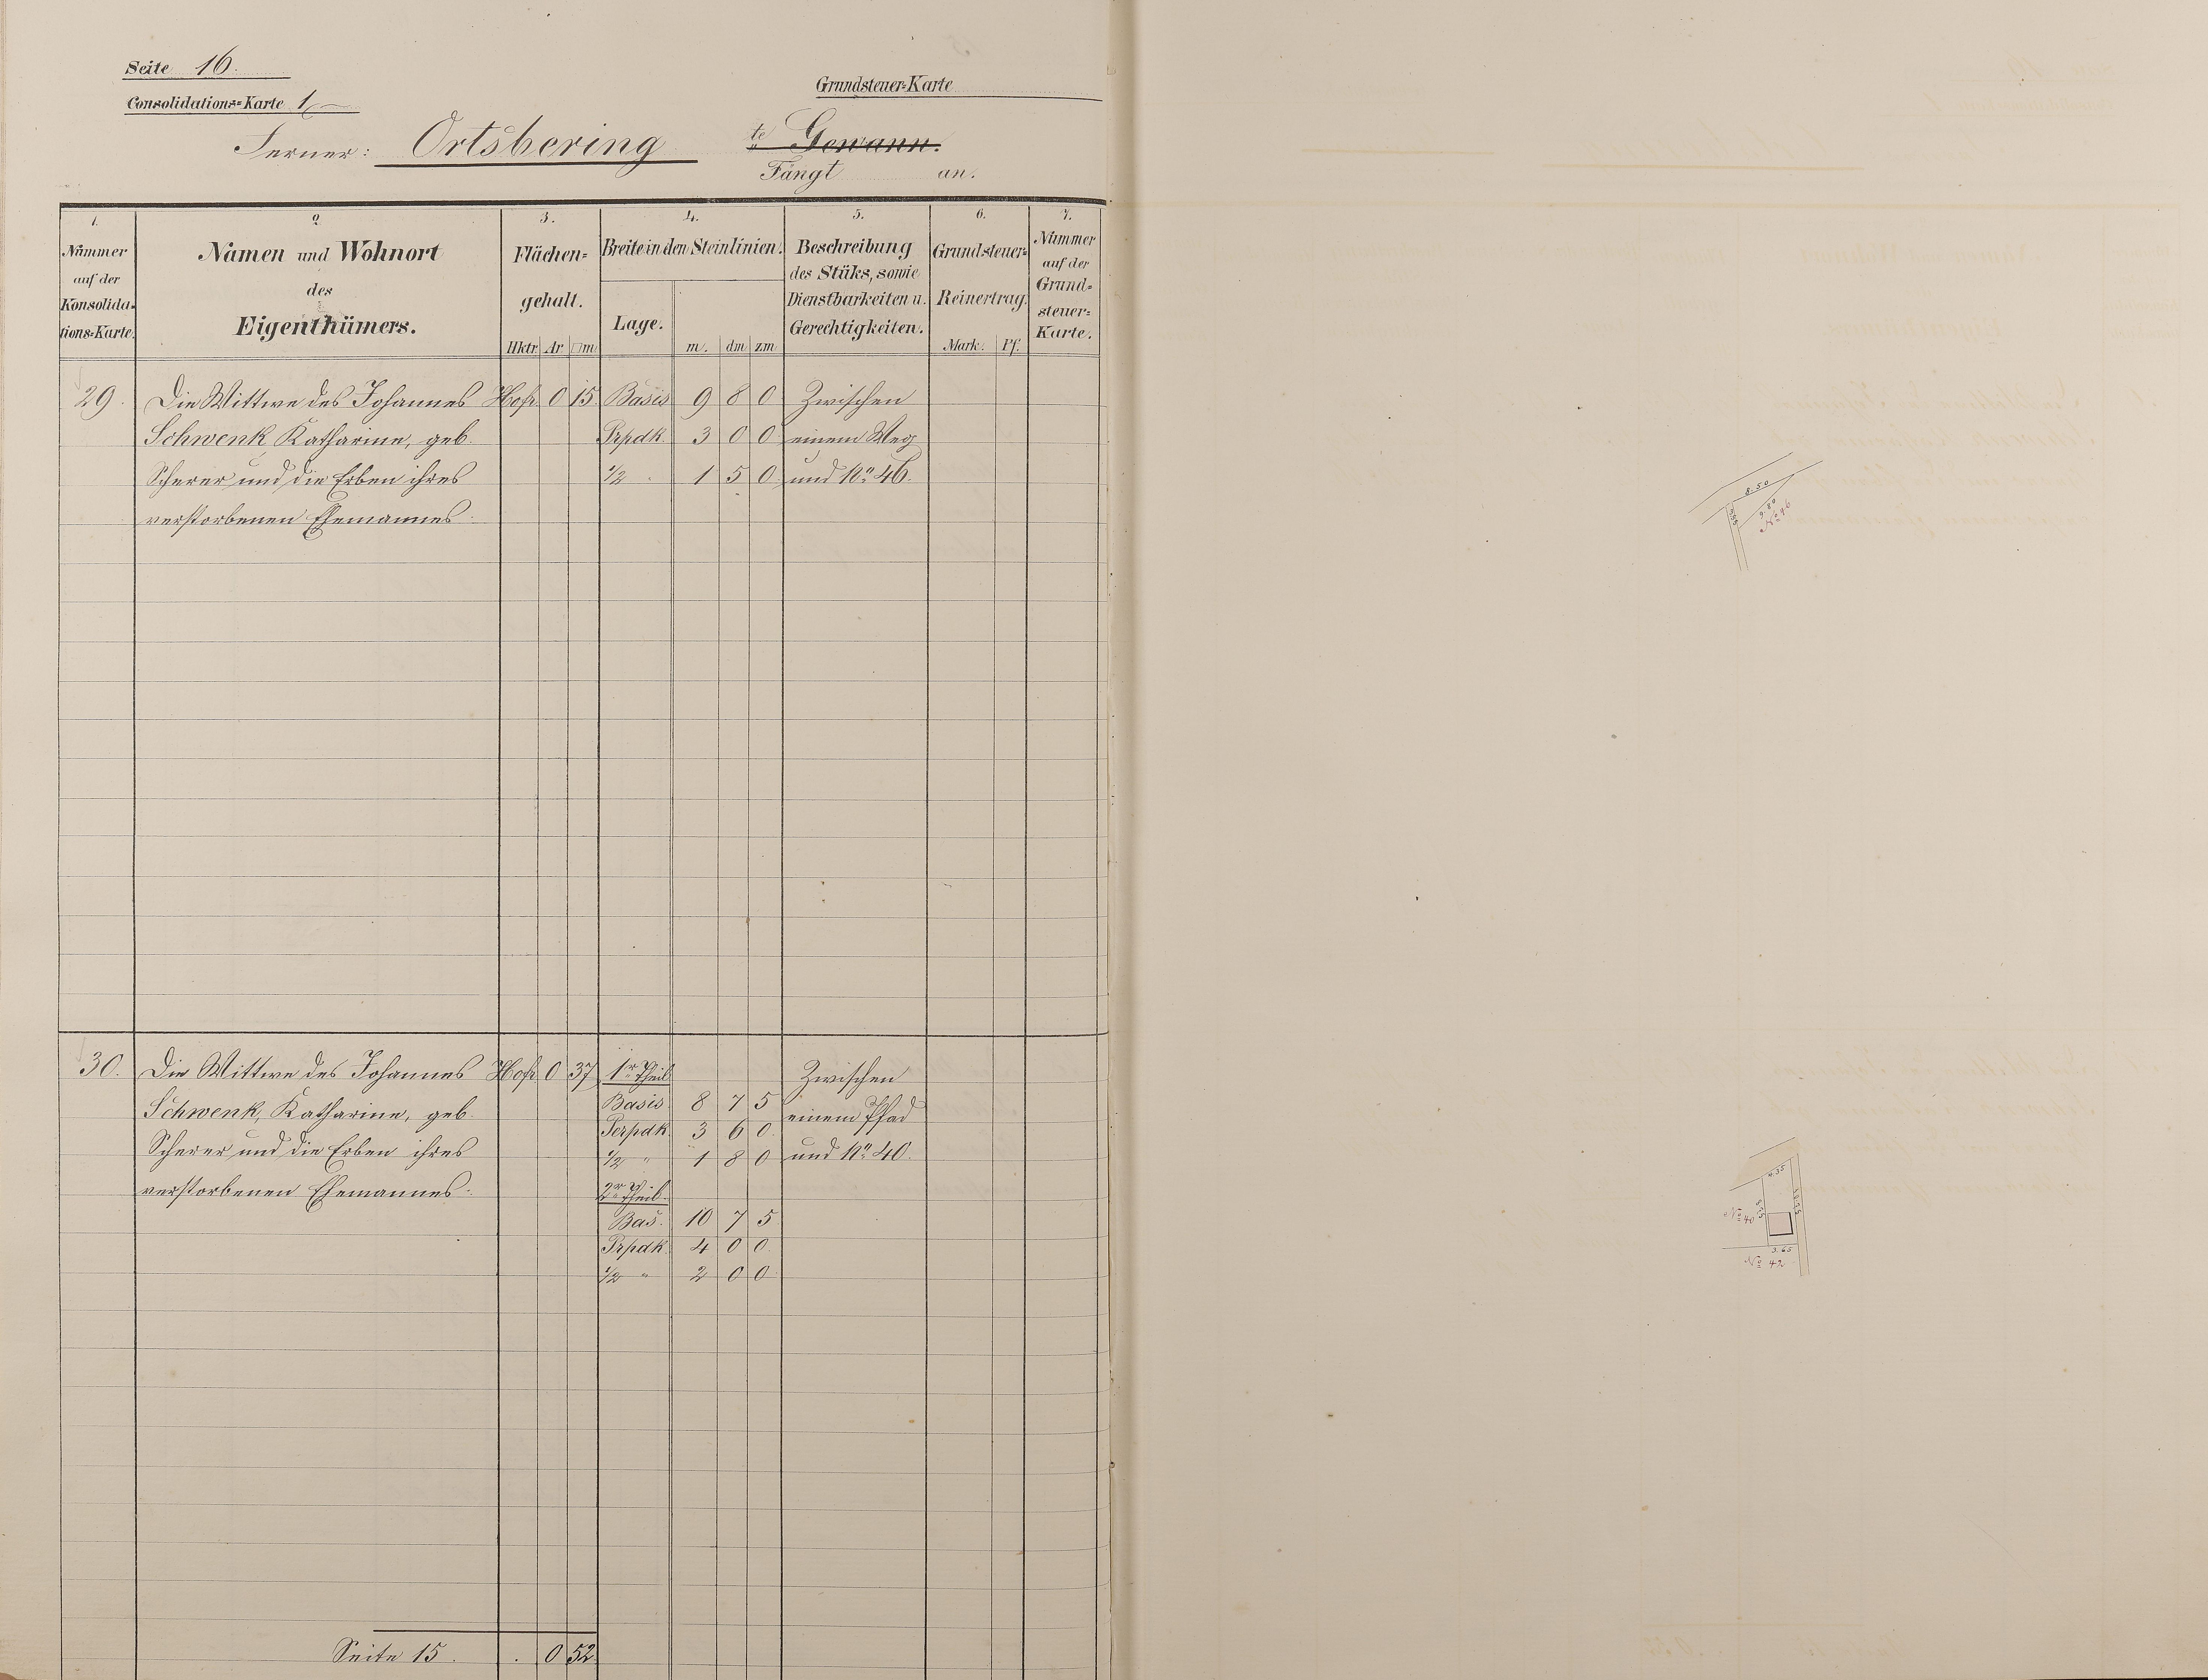 Seite 16.
Consolidations-Karte 1
Grundsteuer-Karte
Ferner: Ortsbering te Gewann.
Fängt an.
1. 2 3. 4. 5. 6. 7.
Nummer auf der Konsolidations-Karte.
Namen und Wohnort
des
Eigenthümers.
Flächen-
gehalt.
Hktr. Ar □m.
Breite in den Steinlinien.
Lage.
m. dm zm.
Beschreibung
des Stüks, sowie
Dienstbarkeiten u.
Gerechtigkeiten.
Grundsteuer-
Reinertrag.
Mark. Pf.
Nummer
auf der
Grund-
steuer-
Karte.
29. Die Wittwe des Johannes Hofr. 0 15 Basis 9 8 0 Zwischen
Schwenk, Katharine, geb. Prpdk. 3 0 0 einem Weg
Scherer und die Erben ihres 1/2 " 1 5 0 und No. 46.
verstorbenen Ehemannes.
30. Die Wittwe des Johannes Hofr. 0 37 1r Theil Zwischen
Schwenk, Katharine, geb. Basis 8 7 5 einem Pfad
Perpdk. 3 6 0
Scherer und die Erben ihres 1/2 " 1 8 0 und No. 40.
verstorbenen Ehemannes. 2r Theil.
Bas. 10 7 5
Prpdk. 4 0 0
1/2 " 2 0 0
Seite 15. . 0 52.
8.50
9.80
No 46
4.35
No 40
3.65
No 42